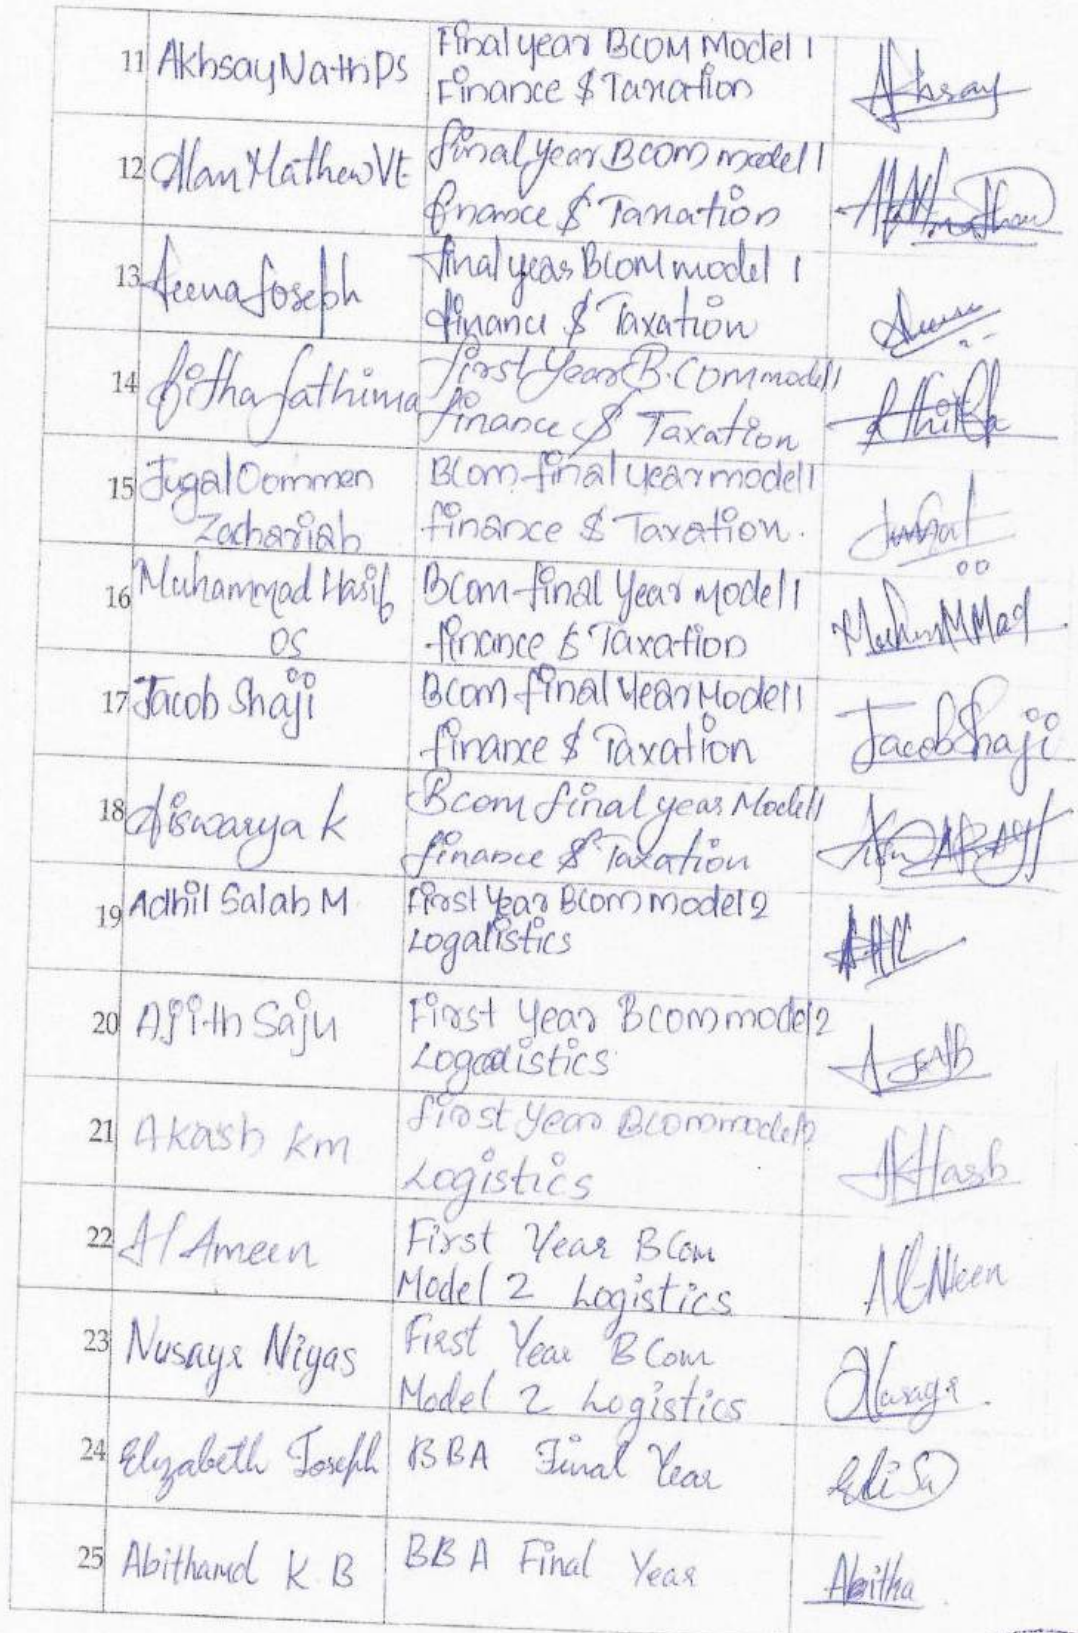 11 Akhsay Nath PS
Final year BCOM Model 1
Finance $ Taxation
Akhsay
12 Allan Mathew Vt
final year BCOM model 1
finance $ Taxation
13 Aeena Joseph
final year BCOM model 1
finance $ Taxation
14 fathima
first Year B.COM model 1
finance $ Taxation
15 Jugal Oommen
Zachariah
BCom final year model 1
finance $ Taxation.
Jugal
16 Muhammad Hasif
OS
BCom final Year model 1
finance $ Taxation
MuhamMMad
17 Jacob Shaji
BCom final Year Model 1
finance $ Taxation
Jacob Shaji
18 Aiswarya k
Bcom final year Model 1
finance $ Taxation
19 Adhil Salah M
First Year BCom model 2
Logalistics
20 Ajith Saju
First Year BCom model 2
Logadistics
Ajith
21 Akash km
first Year BCom model 2
Logistics
Akash
22 Al Ameen
First Year BCom
Model 2 Logistics
23 Nusayr Niyas
First Year BCom
Model 2 Logistics
Nusayr
24 Elizabeth Joseph
BBA Final Year
25 Abithamol K B
BBA Final Year
Abitha